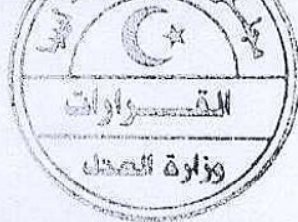 القــــرارات
وزارة العدل